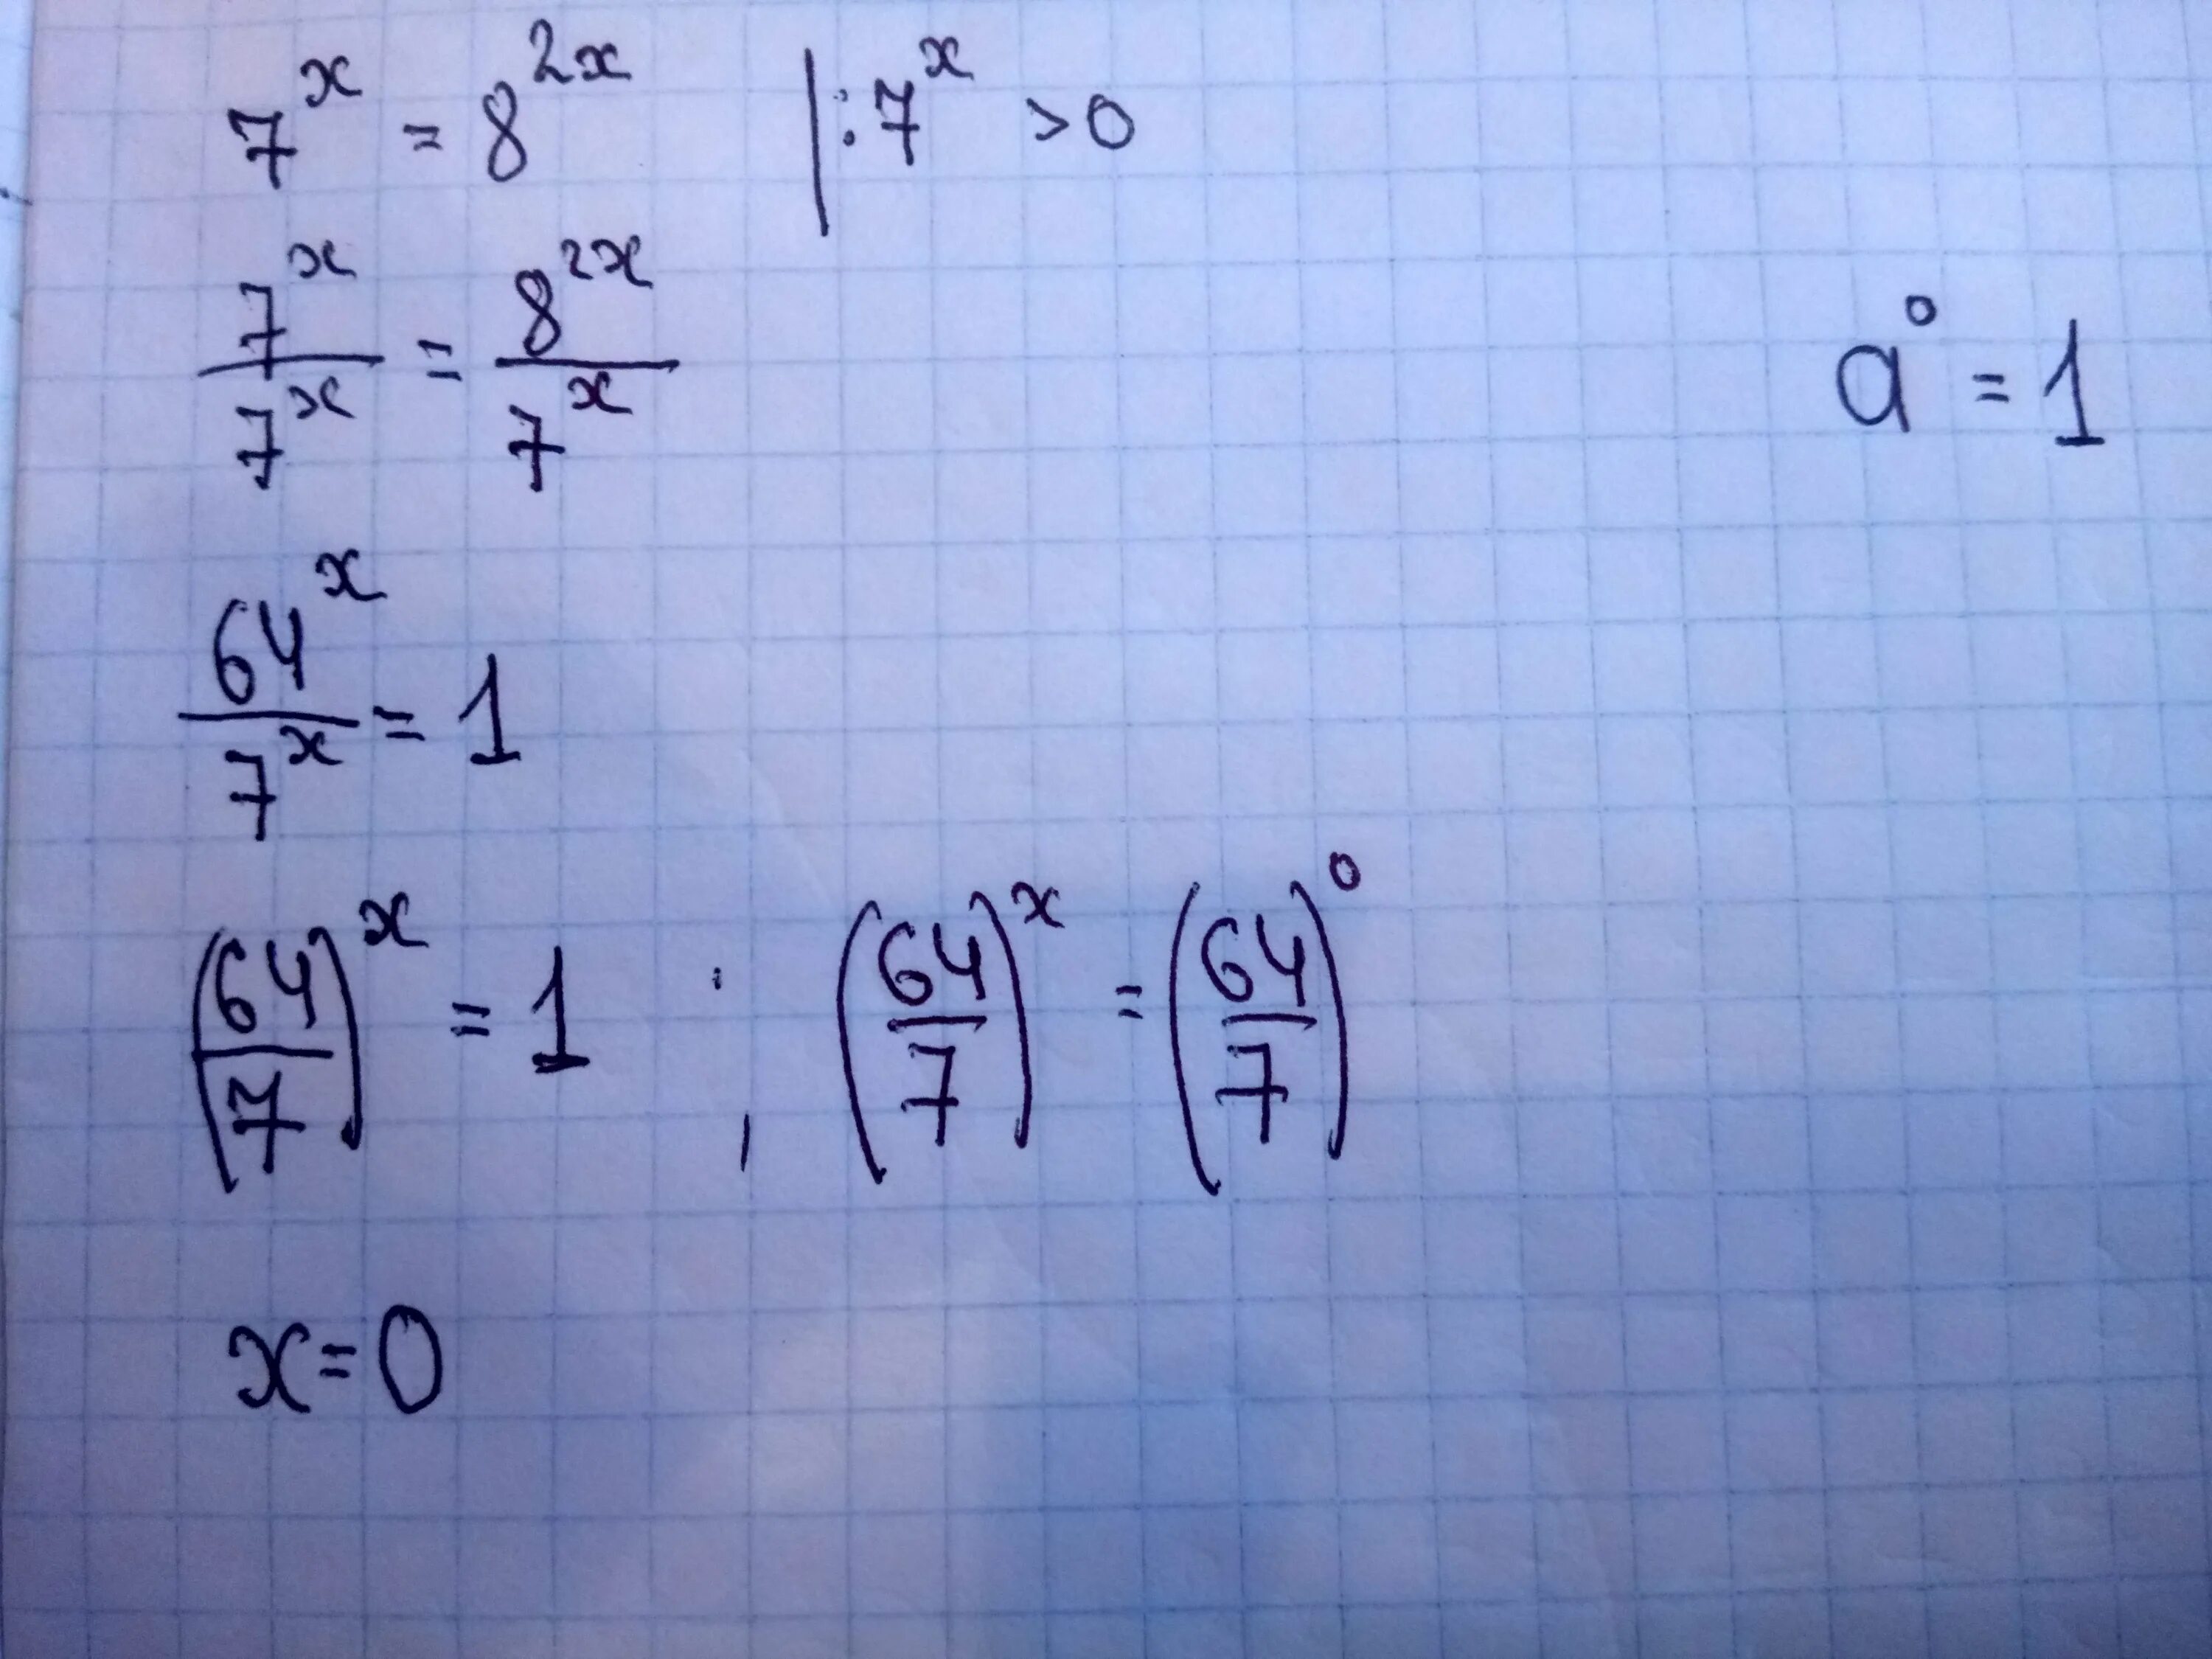 7^x = 8^{2x} | : 7^x > 0
\frac{7^x}{7^x} = \frac{8^{2x}}{7^x}
a^0 = 1
\frac{64^x}{7^x} = 1
(\frac{64}{7})^x = 1 ; (\frac{64}{7})^x = (\frac{64}{7})^0
x = 0